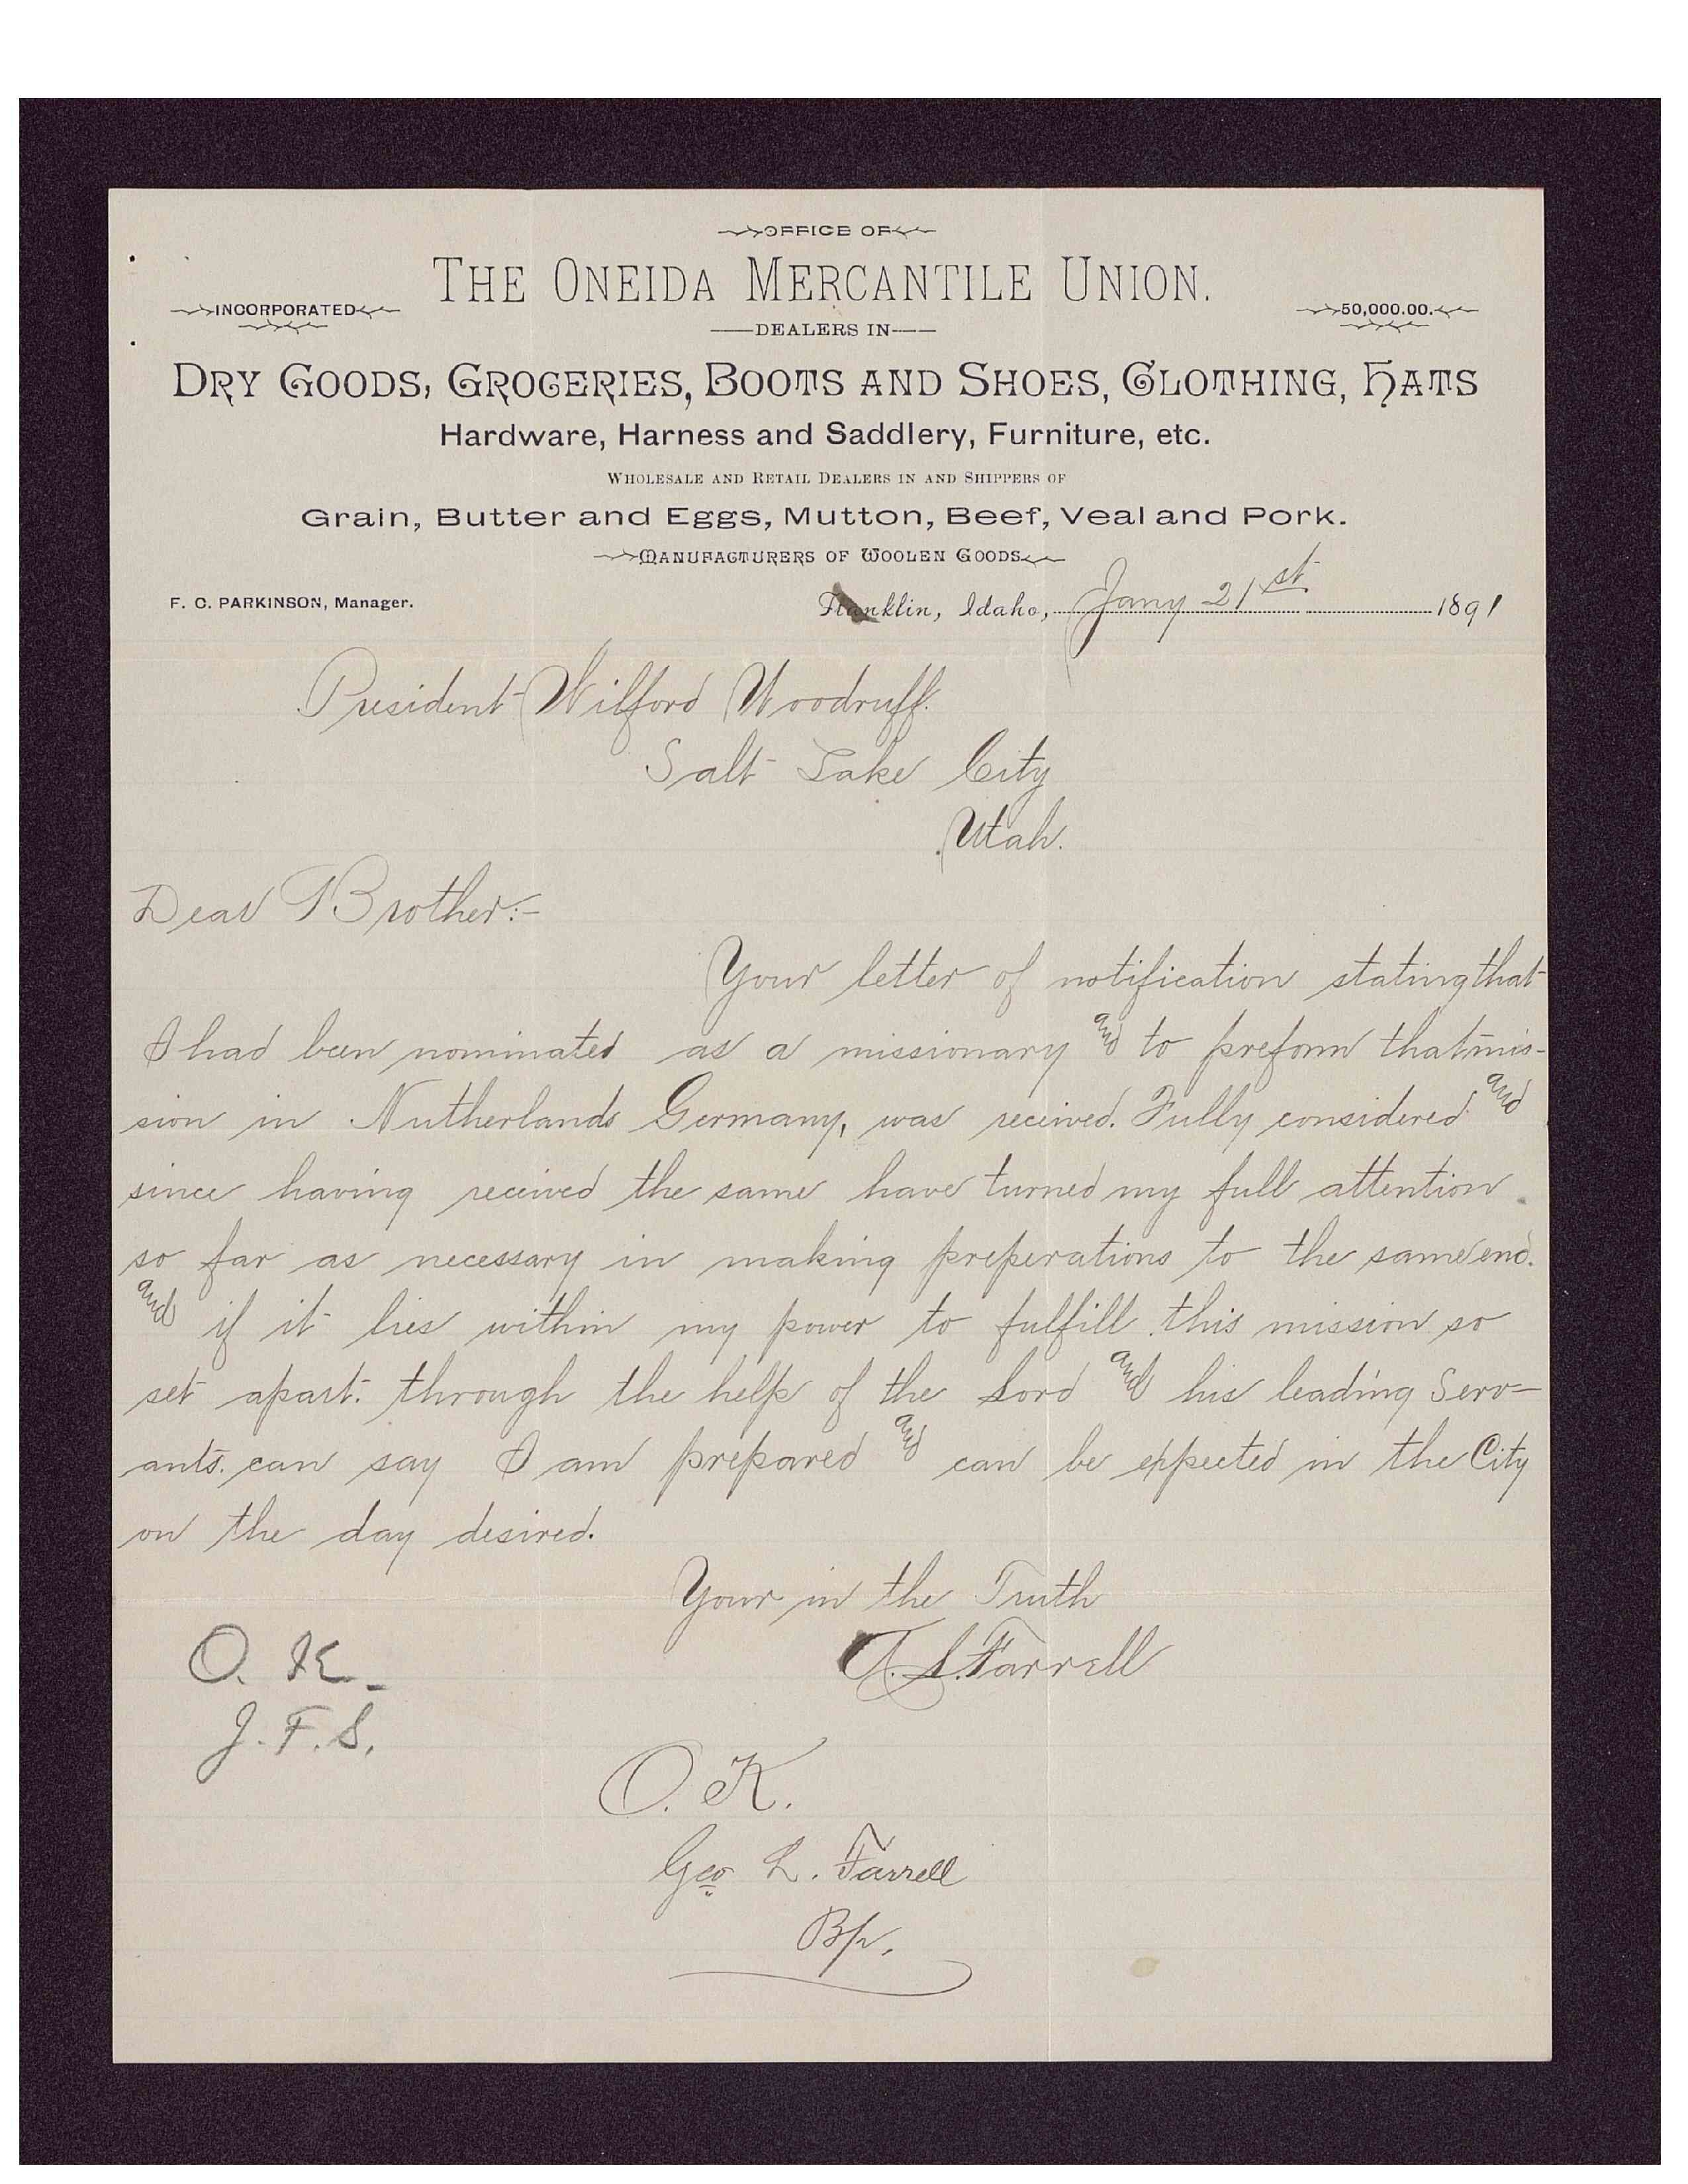 OFFICE OF
THE ONEIDA MERCANTILE UNION.
INCORPORATED
50,000.00.
DEALERS IN
DRY GOODS, GROCERIES, BOOTS AND SHOES, CLOTHING, HATS
Hardware, Harness and Saddlery, Furniture, etc.
WHOLESALE AND RETAIL DEALERS IN AND SHIPPERS OF
Grain, Butter and Eggs, Mutton, Beef, Veal and Pork.
MANUFACTURERS OF WOOLEN GOODS
F. C. PARKINSON, Manager.
Franklin, Idaho, Jany 21st 1891
President Wilford Woodruff.
Salt Lake City
Utah.
Dear Brother:-
Your letter of notification stating that
I had been nominated as a missionary and to preform that mis-
sion in Nutherlands Germany, was received. Fully considered and
since having received the same have turned my full attention
so far as necessary in making preperations to the same end.
and if it lies within my power to fulfill this mission so
set apart. through the help of the Lord and his leading Serv-
ants. can say I am prepared and can be expected in the City
on the day desired.
Your in the Truth
A. L. Farrell
O. K.
J. F. S.
O. K.
Geo L. Farrell
Bp.